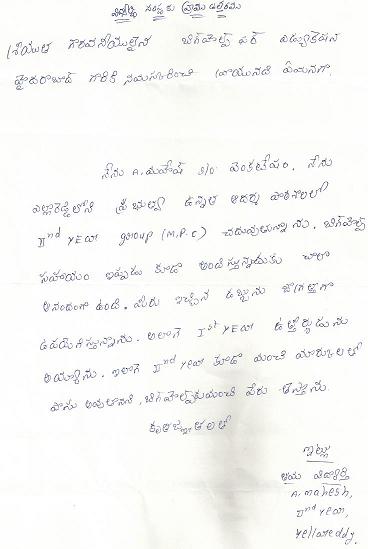 విద్యార్థి సంస్థకు వ్రాయు లేఖము
శ్రీయుత గౌరవనీయులైన బిగ్‌హెల్ప్ ఫర్ ఎడ్యుకేషన్
హైదరాబాద్ గారికి నమస్కరించి వ్రాయునది ఏమనగా.
నేను A.మహేష్ S/o వెంకటేషం. నేను
ఎల్లారెడ్డిలోని ప్రభుత్వ ఉన్నత ఆదర్శ పాఠశాలలో
IInd YEar group (M.P.C) చదువుతున్నాను. బిగ్‌హెల్ప్
సహాయం ఇప్పుడు కూడా అందిస్తున్నందుకు చాలా
ఆనందంగా ఉంది. మీరు ఇచ్చిన డబ్బును జాగ్రత్తగా
ఉపయోగిస్తున్నాను. అలాగే Ist YEar ఉత్తీర్ణుడును
అయ్యాను. ఇలాగే IInd year కూడా మంచి మార్కులతో
పాసు అవుతానని, బిగ్‌హెల్ప్‌కుమంచి పేరు తెస్తాను.
కృతజ్ఞతలతో
ఇట్లు
మీయ విద్యార్థి
A.mahesh,
IInd Year,
Yellareddy.